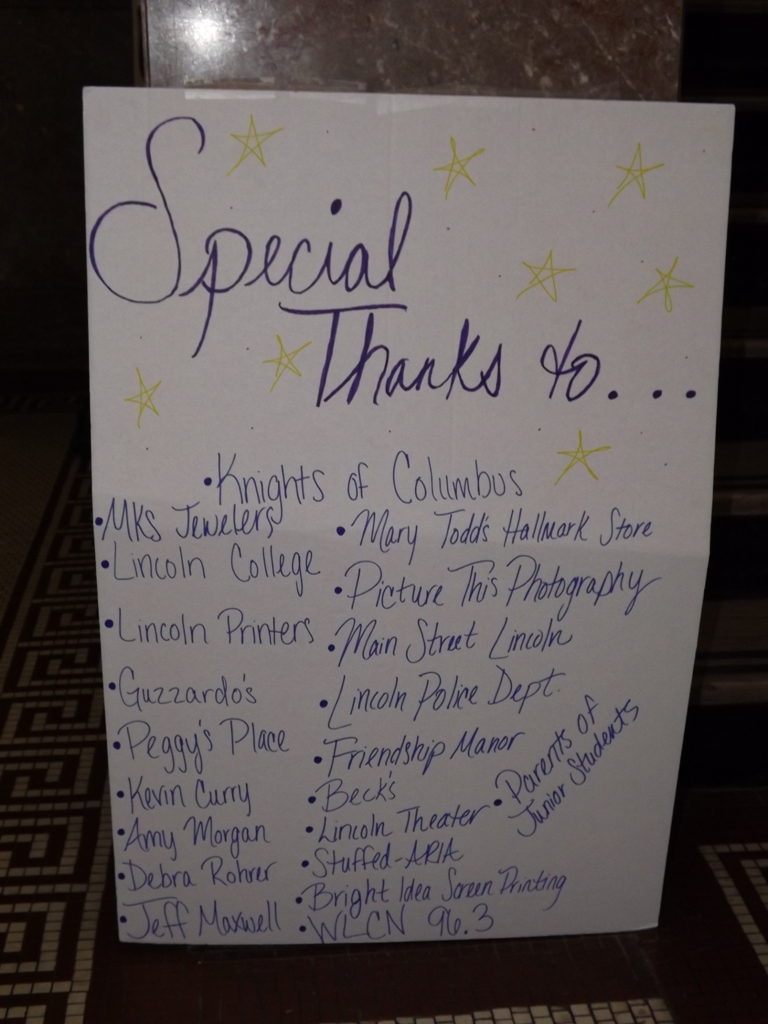 Special
Thanks to...
•Knights of Columbus
•MKS Jewelers
•Lincoln College
•Lincoln Printers
•Guzzardo's
•Peggy's Place
•Kevin Curry
•Amy Morgan
•Debra Rohrer
•Jeff Maxwell
•Mary Todd's Hallmark Store
•Picture This Photography
•Main Street Lincoln
•Lincoln Police Dept.
•Friendship Manor
•Beck's
•Lincoln Theater
•Stuffed-ARIA
•Bright Idea Screen Printing
•WLCN 96.3
•Parents of
Junior Students